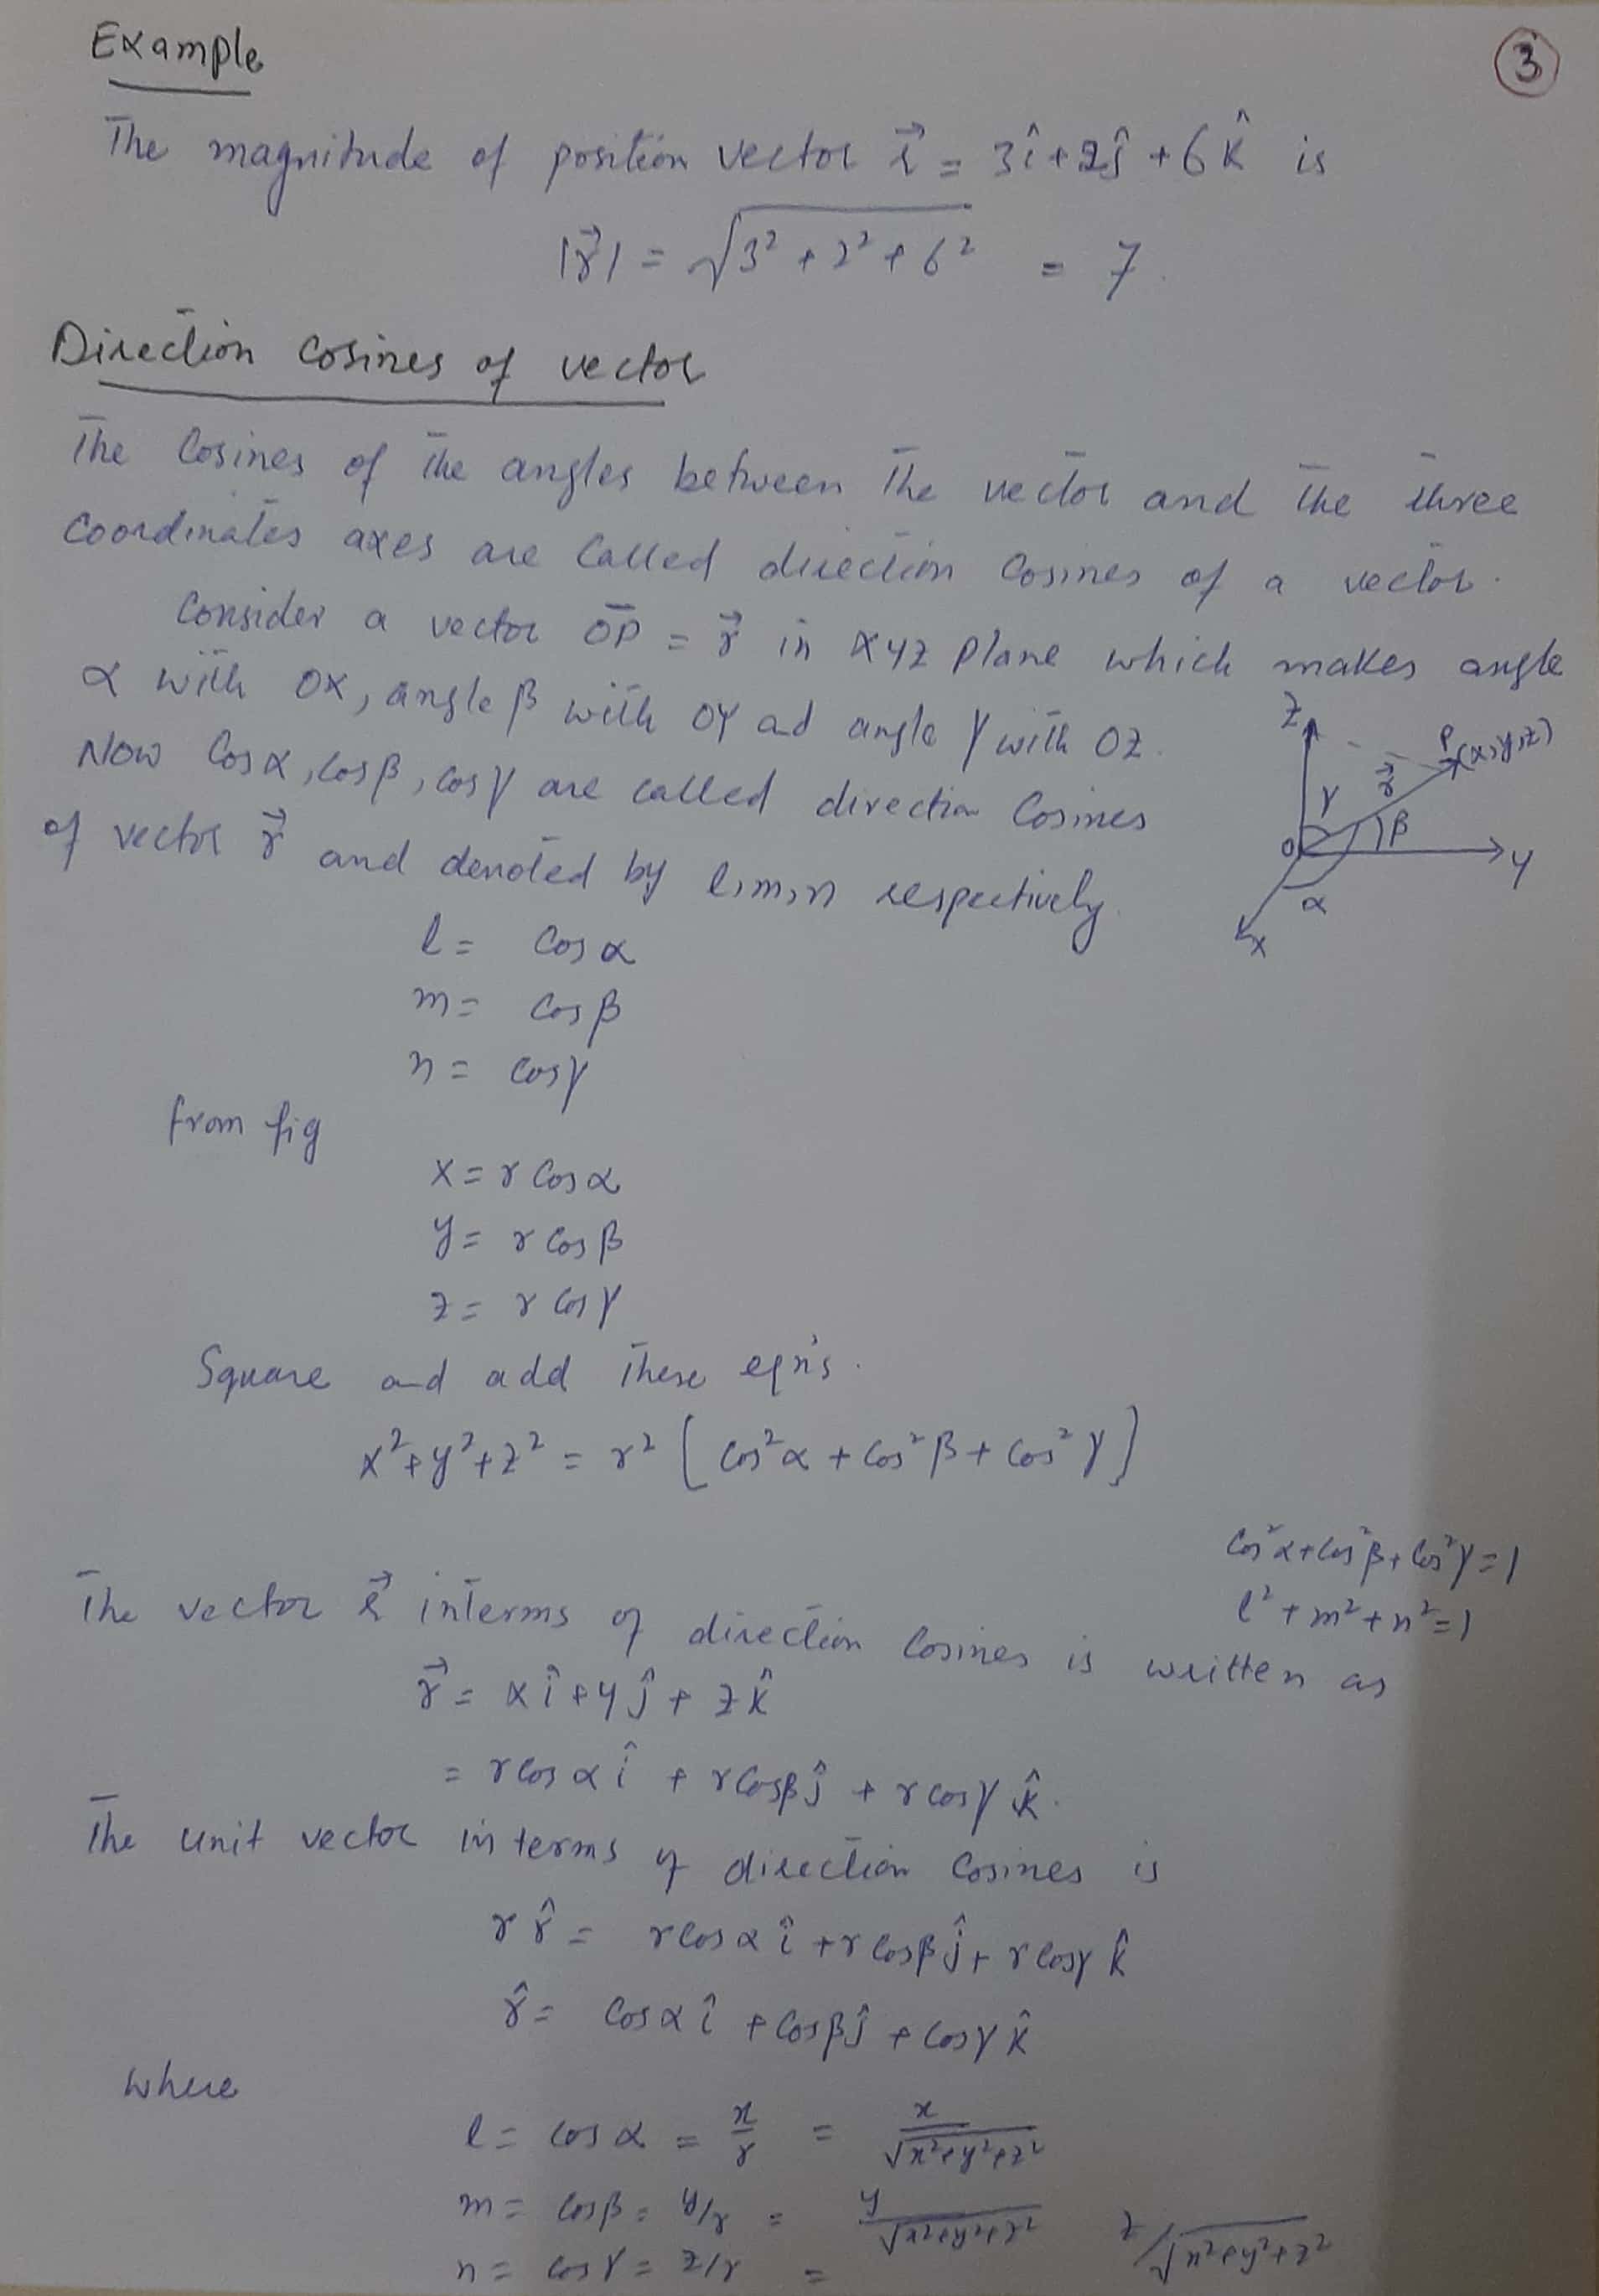 Example
3
The magnitude of position vector r⃗ = 3î + 2ĵ + 6k̂ is
|r⃗| = √(3² + 2² + 6²) = 7.
Direction Cosines of vector
The Cosines of the angles between the vector and the three
Coordinates axes are Called direction Cosines of a vector.
Consider a vector O̅P̅ = r⃗ in xyz plane which makes angle
α with OX, angle β with OY ad angle γ with OZ.
Now Cosα, Cosβ, cosγ are called direction Cosines
of vector r⃗ and denoted by l,m,n respectively.
Z
P(x,y,z)
r⃗
γ
β
O
y
α
x
l = Cosα
m = Cosβ
n = cosγ
from fig
x = r Cosα
y = r Cosβ
z = r Cosγ
Square and add These eqn's.
x² + y² + z² = r² [Cos²α + Cos²β + Cos²γ]
Cos²α + Cos²β + Cos²γ = 1
l² + m² + n² = 1
The vector r⃗ interms of direction Cosines is written as
r⃗ = xî + yĵ + zk̂
= rCosα î + rCosβ ĵ + rcosγ k̂.
The unit vector in terms of direction Cosines is
r r̂ = rCosα î + rCosβ ĵ + rCosγ k̂
r̂ = Cosα î + Cosβ ĵ + Cosγ k̂
where
l = cosα = x/r = x/√(x²+y²+z²)
m = Cosβ = y/r = y/√(x²+y²+z²)
n = cosγ = z/r = z/√(x²+y²+z²)